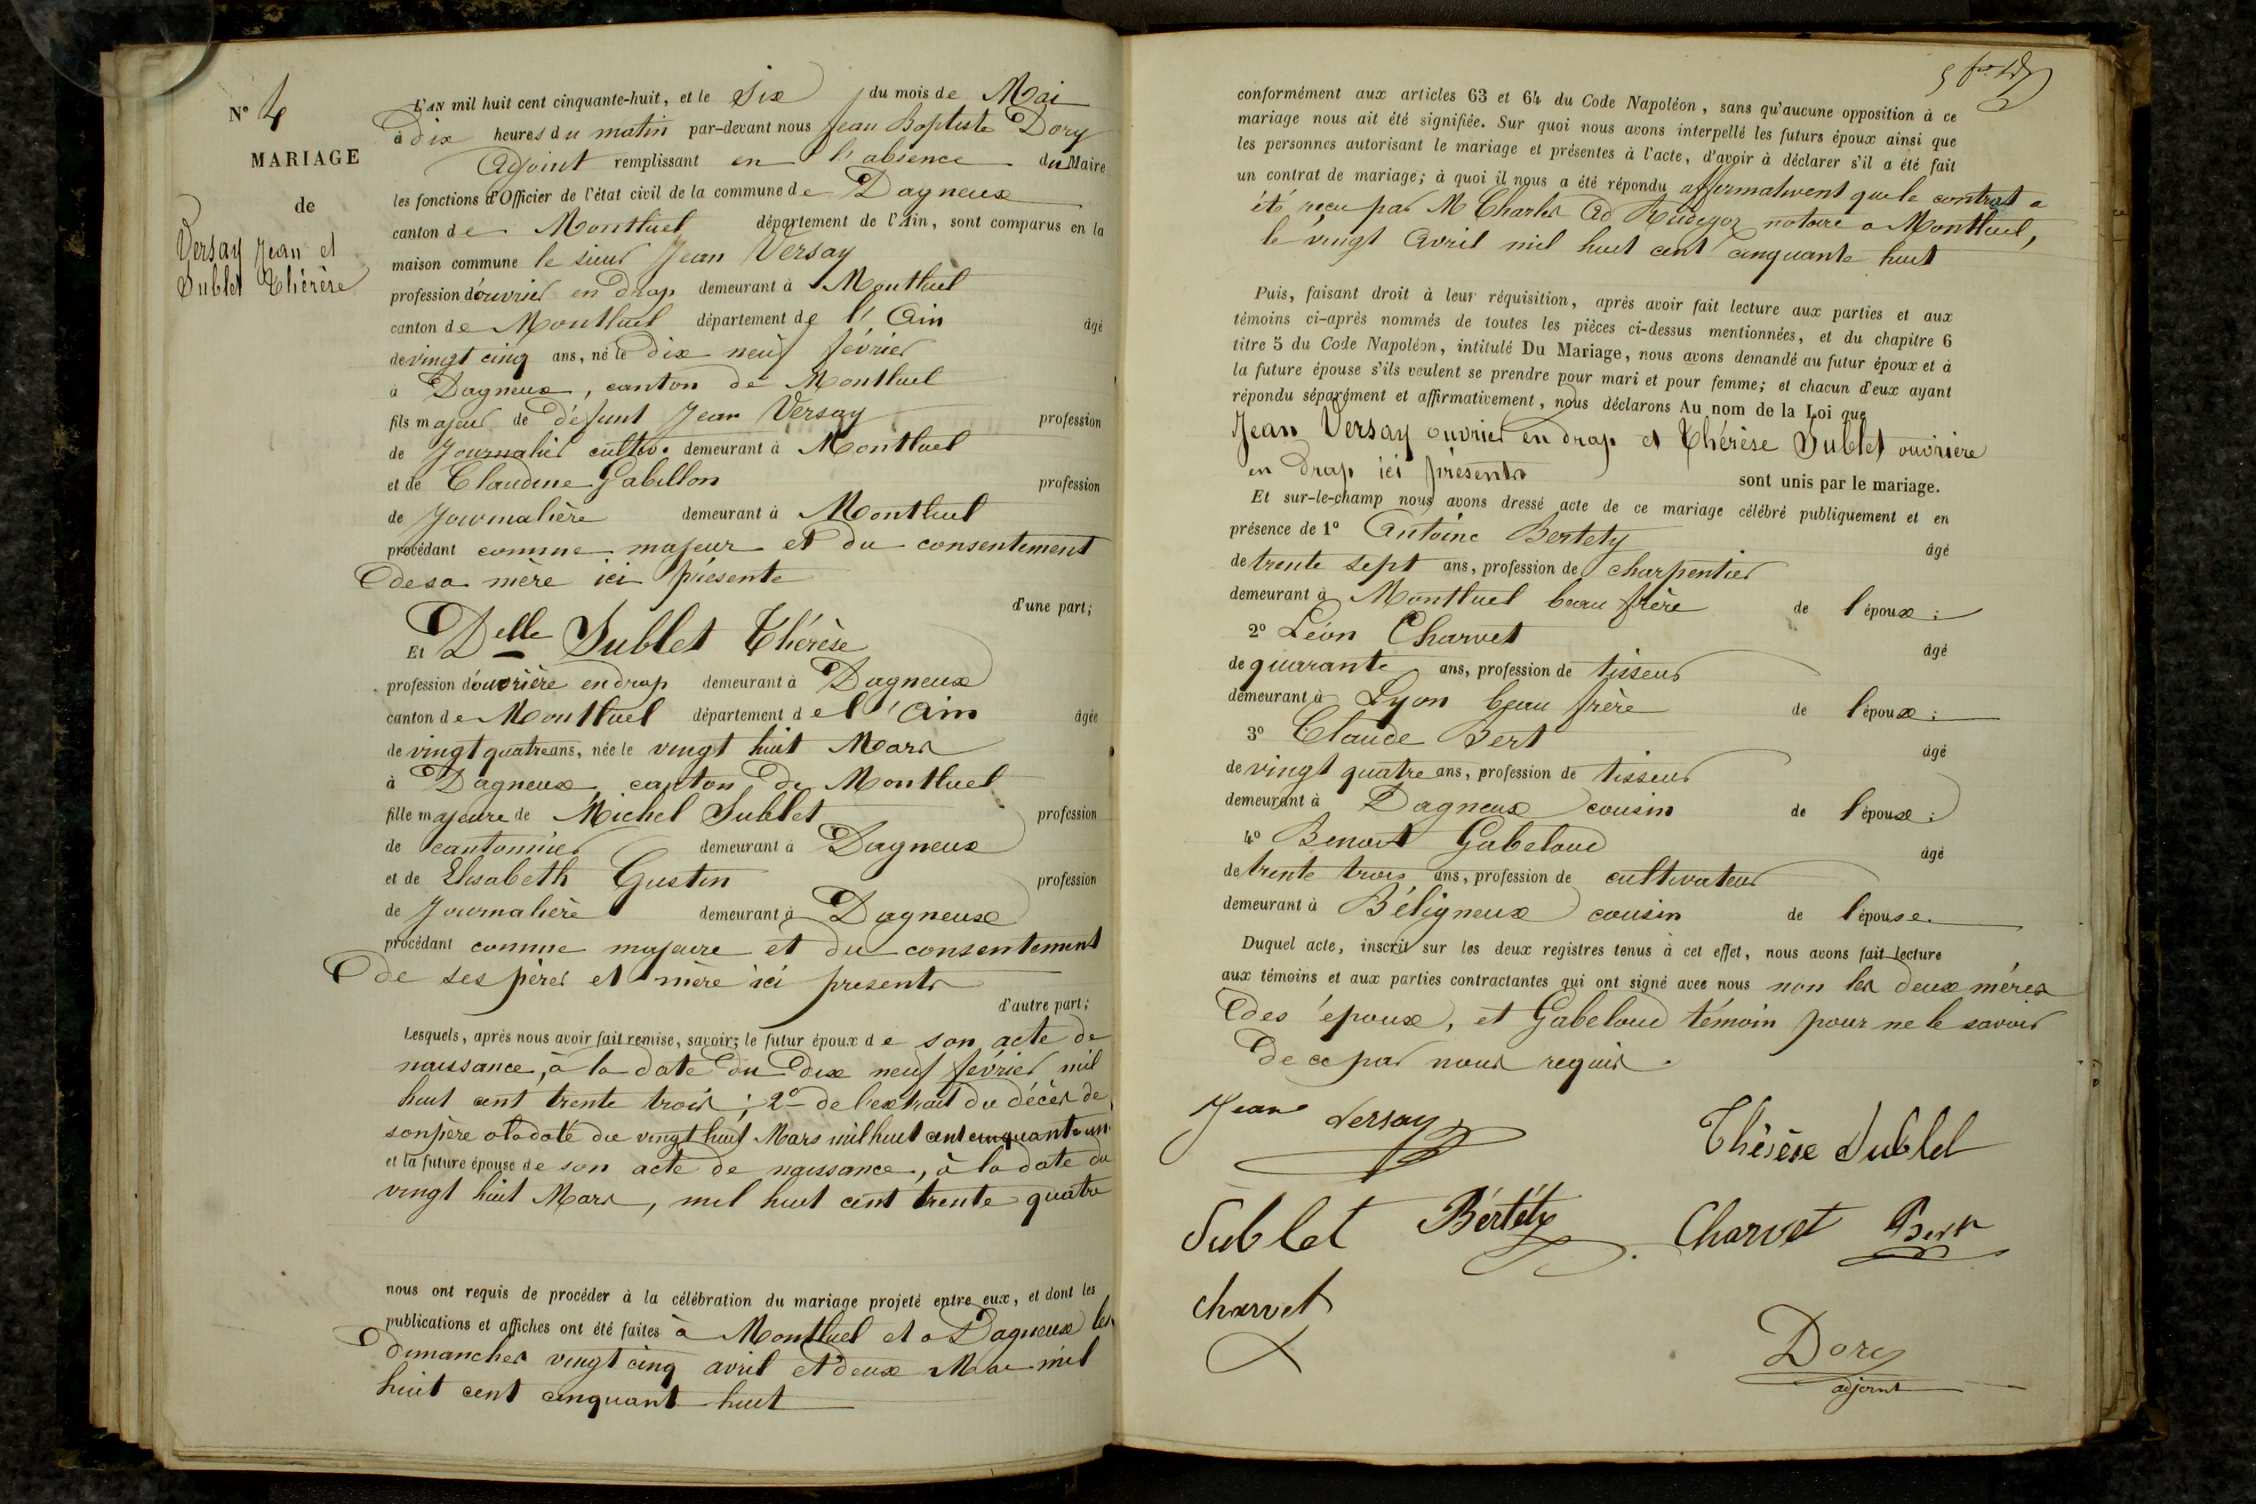 N° 4
MARIAGE
de
Versay Jean et
Sublet Thérèse
L'AN mil huit cent cinquante-huit, et le Six du mois de Mai
à dix heures du matin par-devant nous Jean Baptiste Dory
Adjoint remplissant en l'absence du Maire
les fonctions d'Officier de l'état civil de la commune de Dagneux
canton de Montluel département de l'Ain, sont comparus en la
maison commune le sieur Jean Versay
profession d'ouvrier en drap demeurant à Montluel
canton de Montluel département de l'Ain âgé
de vingt cinq ans, né le dix neuf février
à Dagneux, canton de Montluel
fils majeur de défunt Jean Versay profession
de Journalier cultiv. demeurant à Montluel
et de Claudine Gabillon profession
de Journalière demeurant à Montluel
procédant comme majeur et du consentement
de sa mère ici présente
d'une part;
Et Delle Sublet Thérèse
profession d'ouvrière en drap demeurant à Dagneux
canton de Montluel département de l'Ain âgée
de vingt quatre ans, née le vingt huit Mars
à Dagneux canton de Montluel
fille majeure de Michel Sublet profession
de cantonnier demeurant à Dagneux
et de Elisabeth Gustin profession
de Journalière demeurant à Dagneux
procédant comme majeure et du consentement
de ses pères et mère ici presents
d'autre part;
Lesquels, après nous avoir fait remise, savoir; le futur époux de son acte de
naissance, à la date du dix neuf février mil
huit cent trente trois; 2° de l'extrait du décès de
son père a la date du vingt huit Mars mil huit cent cinquante un
et la future épouse de son acte de naissance, à la date du
vingt huit Mars, mil huit cent trente quatre
nous ont requis de procéder à la célébration du mariage projeté entre eux, et dont les
publications et affiches ont été faites à Montluel et a Dagneux les
dimanches vingt cinq avril et deux Mai mil
huit cent cinquant huit
conformément aux articles 63 et 64 du Code Napoléon, sans qu'aucune opposition à ce
mariage nous ait été signifiée. Sur quoi nous avons interpellé les futurs époux ainsi que
les personnes autorisant le mariage et présentes à l'acte, d'avoir à déclarer s'il a été fait
un contrat de mariage; à quoi il nous a été répondu affirmativent que le contrat a
été reçu par M Charles notaire a Montluel,
le vingt Avril mil huit cent cinquante huit
Puis, faisant droit à leur réquisition, après avoir fait lecture aux parties et aux
témoins ci-après nommés de toutes les pièces ci-dessus mentionnées, et du chapitre 6
titre 5 du Code Napoléon, intitulé Du Mariage, nous avons demandé au futur époux et à
la future épouse s'ils veulent se prendre pour mari et pour femme; et chacun d'eux ayant
répondu séparément et affirmativement, nous déclarons Au nom de la Loi que
Jean Versay ouvrier en drap et Thérèse Sublet ouvrière
en drap ici présents sont unis par le mariage.
Et sur-le-champ nous avons dressé acte de ce mariage célébré publiquement et en
présence de 1° Antoine Bertety âgé
de trente sept ans, profession de charpentier
demeurant à Montluel beau frère de l'époux;
2° Léon Charvet âgé
de quarante ans, profession de tisseur
demeurant à Lyon beau frère de l'époux;
3° Claude Bert âgé
de vingt quatre ans, profession de tisseur
demeurant à Dagneux cousin de l'époux;
4° Benoit Gabeloud âgé
de trente trois ans, profession de cultivateur
demeurant à Béligneux cousin de l'épouse.
Duquel acte, inscrit sur les deux registres tenus à cet effet, nous avons fait lecture
aux témoins et aux parties contractantes qui ont signé avec nous non les deux mères
des époux, et Gabeloud témoin pour ne le savoir
de ce par nous requis.
Jean Versay
Thérèse Sublet
Sublet Bértéty Charvet Bert
Charvet
Dory
adjoint